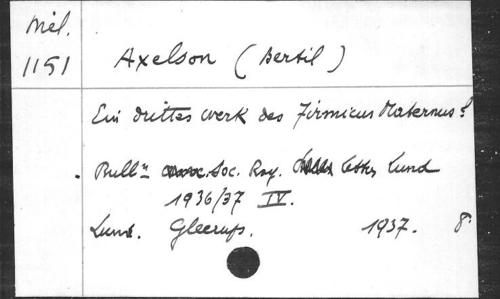 Mél.
1151
Axelson (Bertil)
Ein drittes Werk des Firmicus Maternus?
Bullⁿ Soc. Roy. Lettres Lund
1936/37 IV.
Lund. Gleerup. 1937. 8°